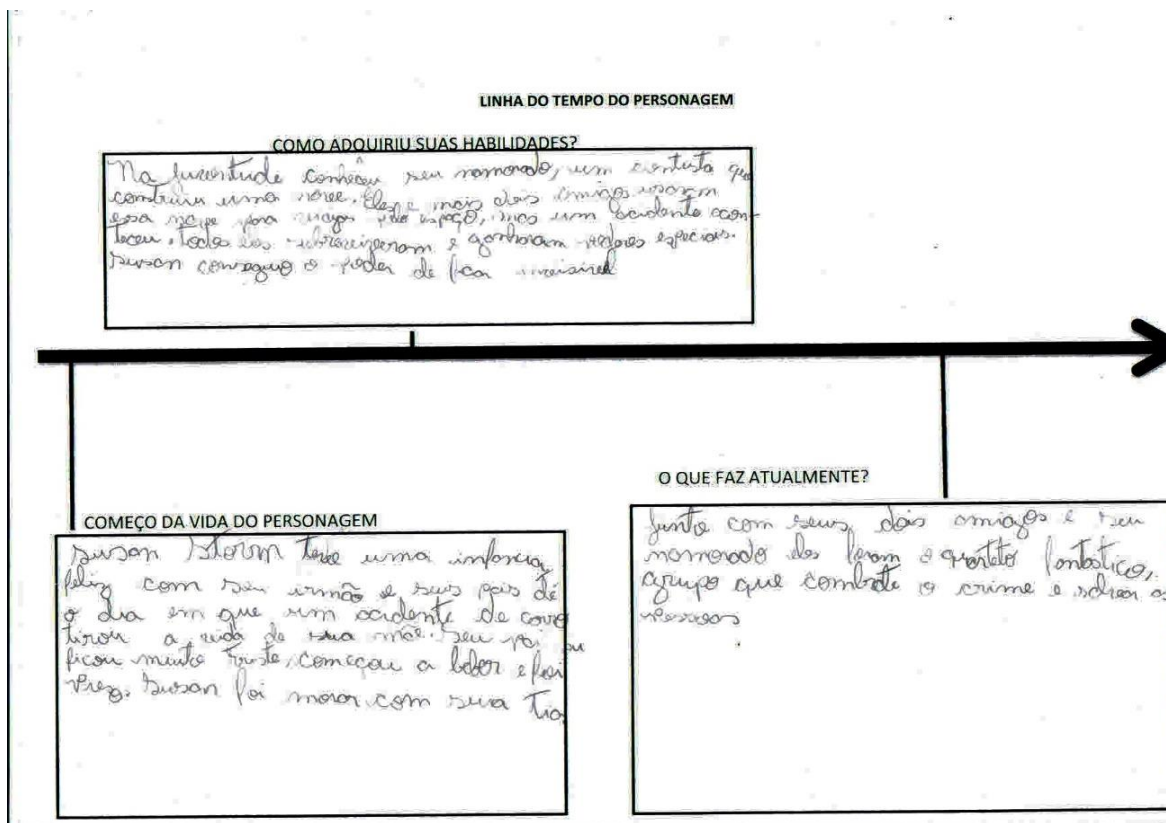 LINHA DO TEMPO DO PERSONAGEM
COMO ADQUIRIU SUAS HABILIDADES?
Na juventude conheceu seu namorado, um cientista que
construiu uma nave. Eles e mais dois amigos usaram
essa nave para viagem pelo espaço, mas um acidente acon-
teceu, todos eles sobreviveram e ganharam poderes especiais.
Susan conseguio o poder de ficar invisível
COMEÇO DA VIDA DO PERSONAGEM
Susan Storm teve uma infancia
feliz com seu irmão e seus pais
o dia em que um acidente de carro
tirou a vida de sua mãe. Seu pai
ficou muito triste, começou a beber e foi
prezo. Susan foi morar com sua tia
O QUE FAZ ATUALMENTE?
Junto com seus dois amigos e seu
namorado eles foram o quarteto fantastico,
grupo que combate o crime e salvam as
pessoas